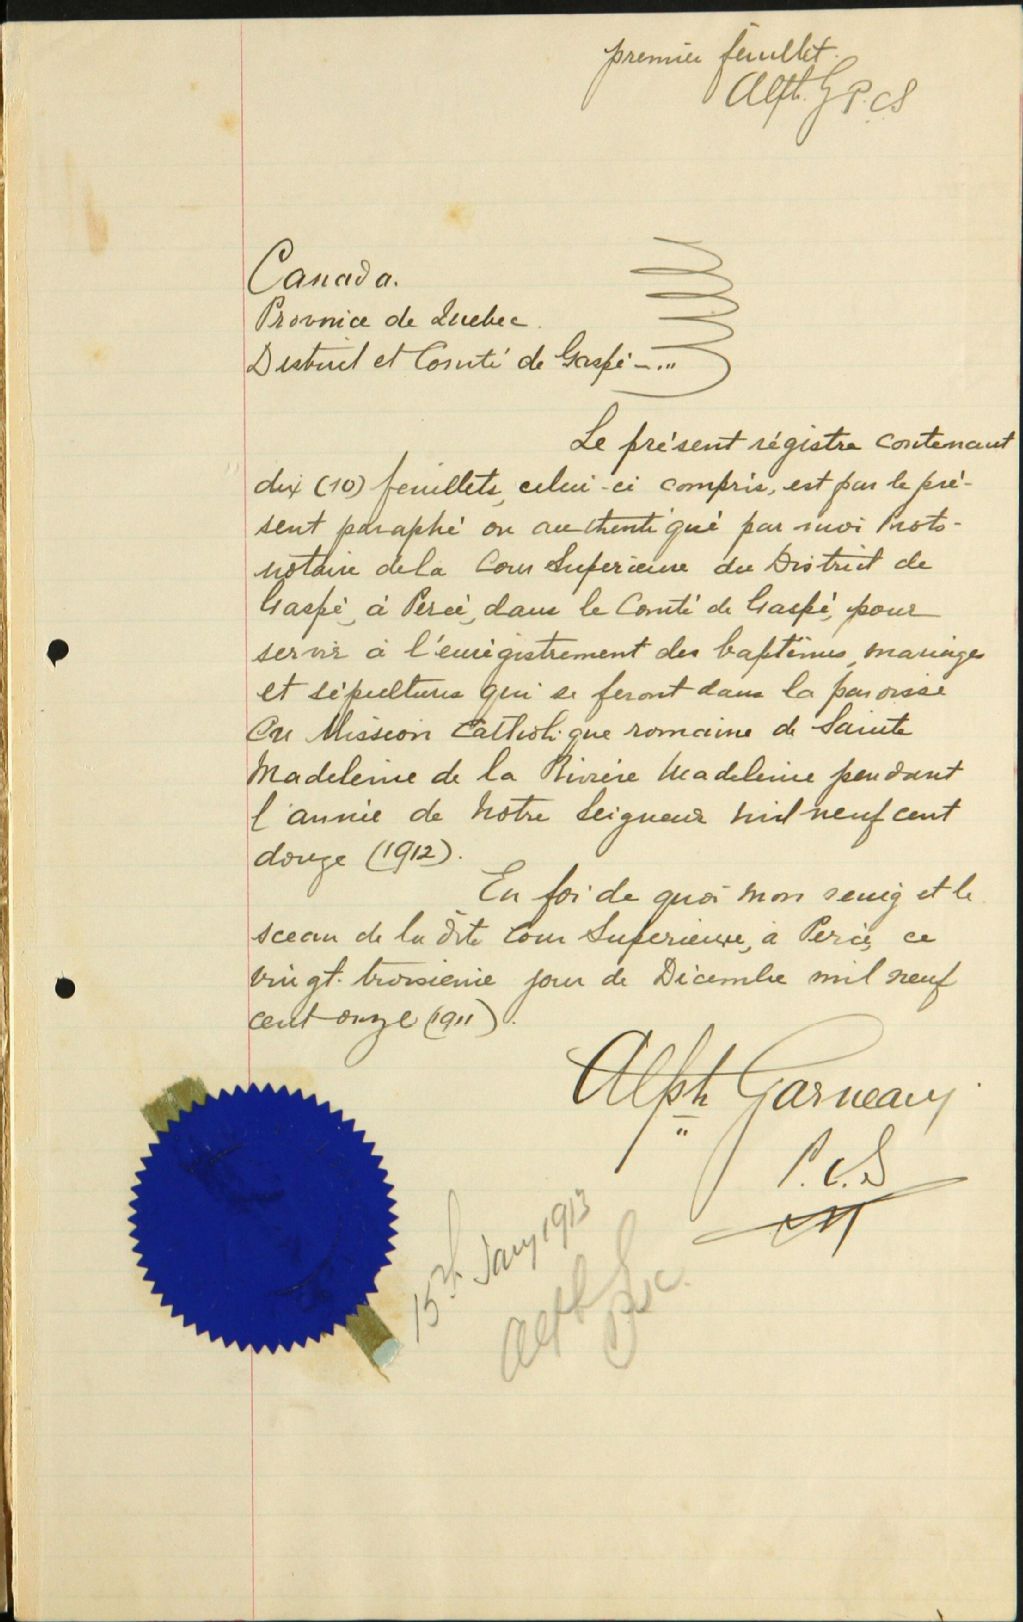 premier feuillet.
Alph. G P.C.S
Canada.
Province de Quebec.
District et Comté de Gaspé
Le présent régistre contenant
dix (10) feuillets, celui-ci compris, est par le pré-
sent paraphé ou authentiqué par moi Proto-
notaire de la Cour Superieure du District de
Gaspé, à Percé, dans le Comté de Gaspé, pour
servir à l'enrégistrement des baptêmes, mariages
et sépultures qui se feront dans la paroisse
Ou Mission Catholique romaine de Sainte
Madeleine de la Rivière Madeleine pendant
l'année de Notre Seigneur mil neuf cent
douze (1912).
En foi de quoi mon seing et le
sceau de la dite Cour Superieure, à Percé, ce
vingt-troisieme jour de Décembre mil neuf
cent onze (1911).
Alph Garneau
P.C.S
15th Jany 1913
Alph G